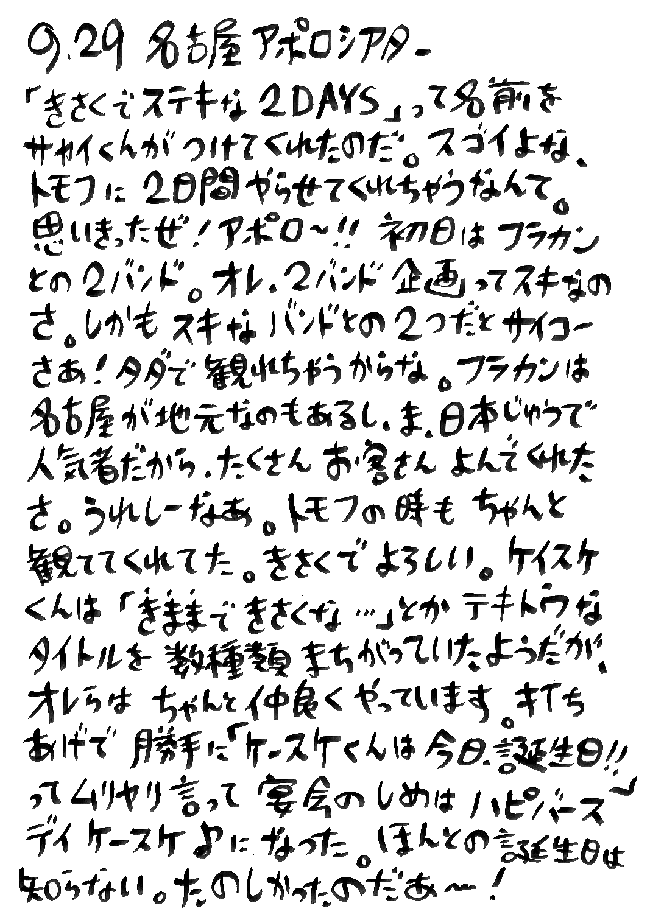 9.29 名古屋 アポロシアター
「きさくでステキな 2DAYS」って名前を
サカイくんが つけてくれたのだ。スゴイよな、
トモフに 2日間 やらせてくれちゃうなんて。
思いきったぜ!アポロ〜!! 初日は フラカン
との2バンド。オレ、2バンド 企画ってスキなの
さ。しかも スキな バンドとの 2つだと サイコー
さあ!タダで 観れちゃうからな。フラカンは
名古屋が地元なのもあるし、ま、日本じゅうで
人気者だから、たくさん お客さん よんでくれた
さ。うれしーなあ。トモフの時も ちゃんと
観ててくれてた。きさくで よろしい。ケイスケ
くんは「きままで きさくな…」とか テキトウな
タイトルを 数種類 まちがっていたようだが、
オレらは ちゃんと仲良く やっています。打ち
あげで 勝手に「ケースケくんは 今日、誕生日!!」
って ムリヤリ 言って 宴会の しめは ハピバース
デイ ケースケ♪に なった。ほんとの 誕生日は
知らない。たのしかったのだあ〜!